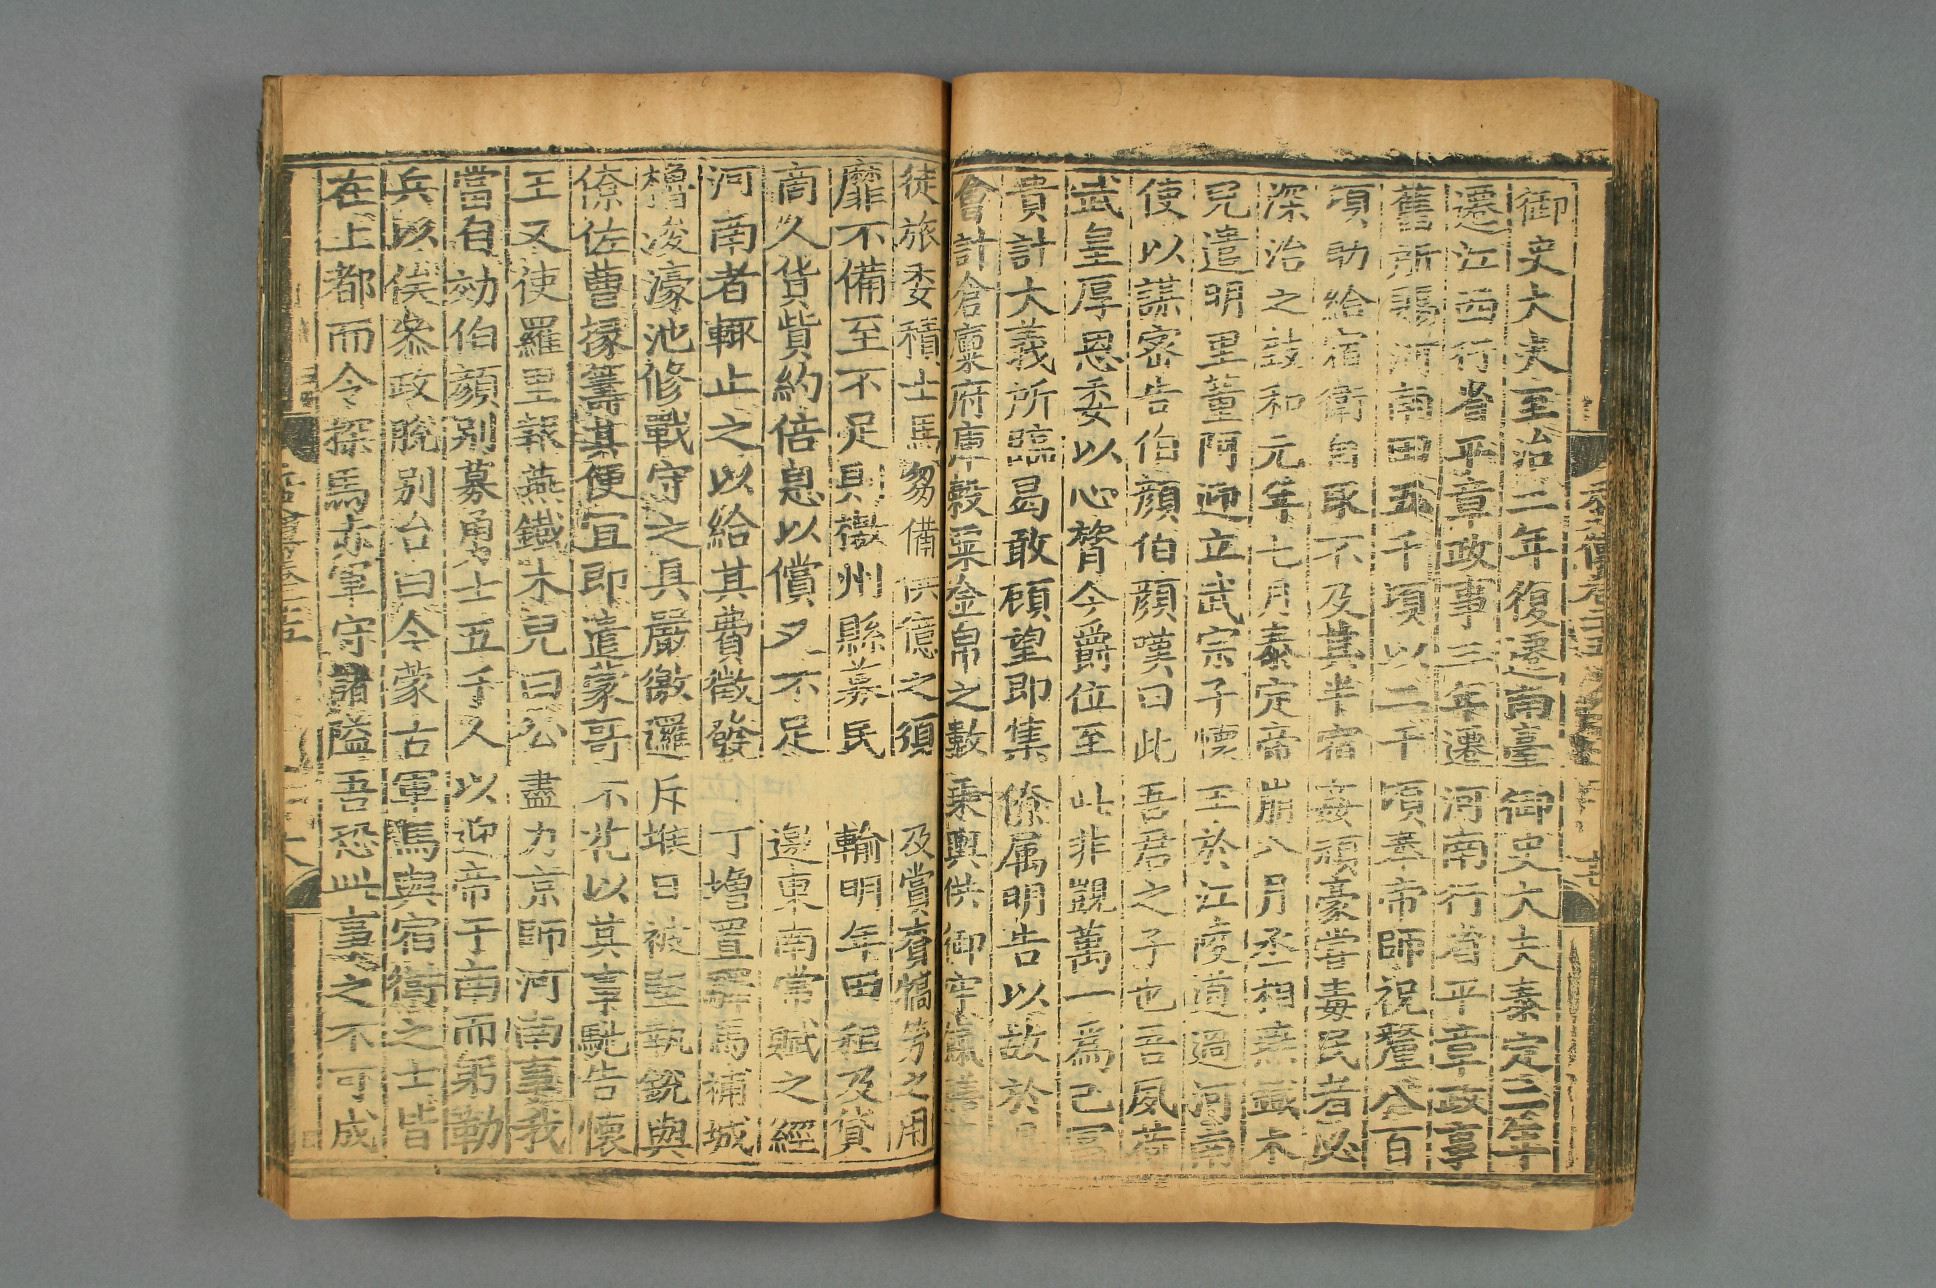 御史大夫至治二年復遷南臺御史大夫泰定三年
遷江西行省平章政事三年遷河南行省平章政事
舊所賜河南田五千頃以二千頃奉帝師祝釐八百
頃助給宿衛自取不及其半宿姦頑豪嘗毒民者必
深治之致和元年七月泰定帝崩八月丞相燕鐵木
兒遣明里董阿迎立武宗子懷王於江陵道過河南
使以謀密告伯顏伯顏嘆曰此吾君之子也吾夙荷
武皇厚恩委以心膂今爵位至此非覬萬一爲己富
貴計大義所臨曷敢顧望即集僚属明告以故於
會計倉廩府庫穀粟金帛之數乗輿供御牢
徒旅委積士馬芻備供億之須及賞賚犒労之用
靡不備至不足則檄州縣募民輸明年田租及貸
商人貨貲約倍息以償又不足邀東南常賦之經
河南者輒止之以給其費徵發丁增置驛馬補城
櫓浚濠池修戰守之具嚴徼邏斥堠日被堅執銳與
僚佐曹掾籌其便宜即遣蒙哥不花以其事馳告懷
王又使羅里報燕鐵木兒曰公盡力京師河南事我
當自効伯顏別募勇士五千人以迎帝于南而躬勒
兵以俟叅政脫别台曰今蒙古軍馬與宿衛之士皆
在上都而令探馬赤軍守嶺隘吾恐此事之不可成